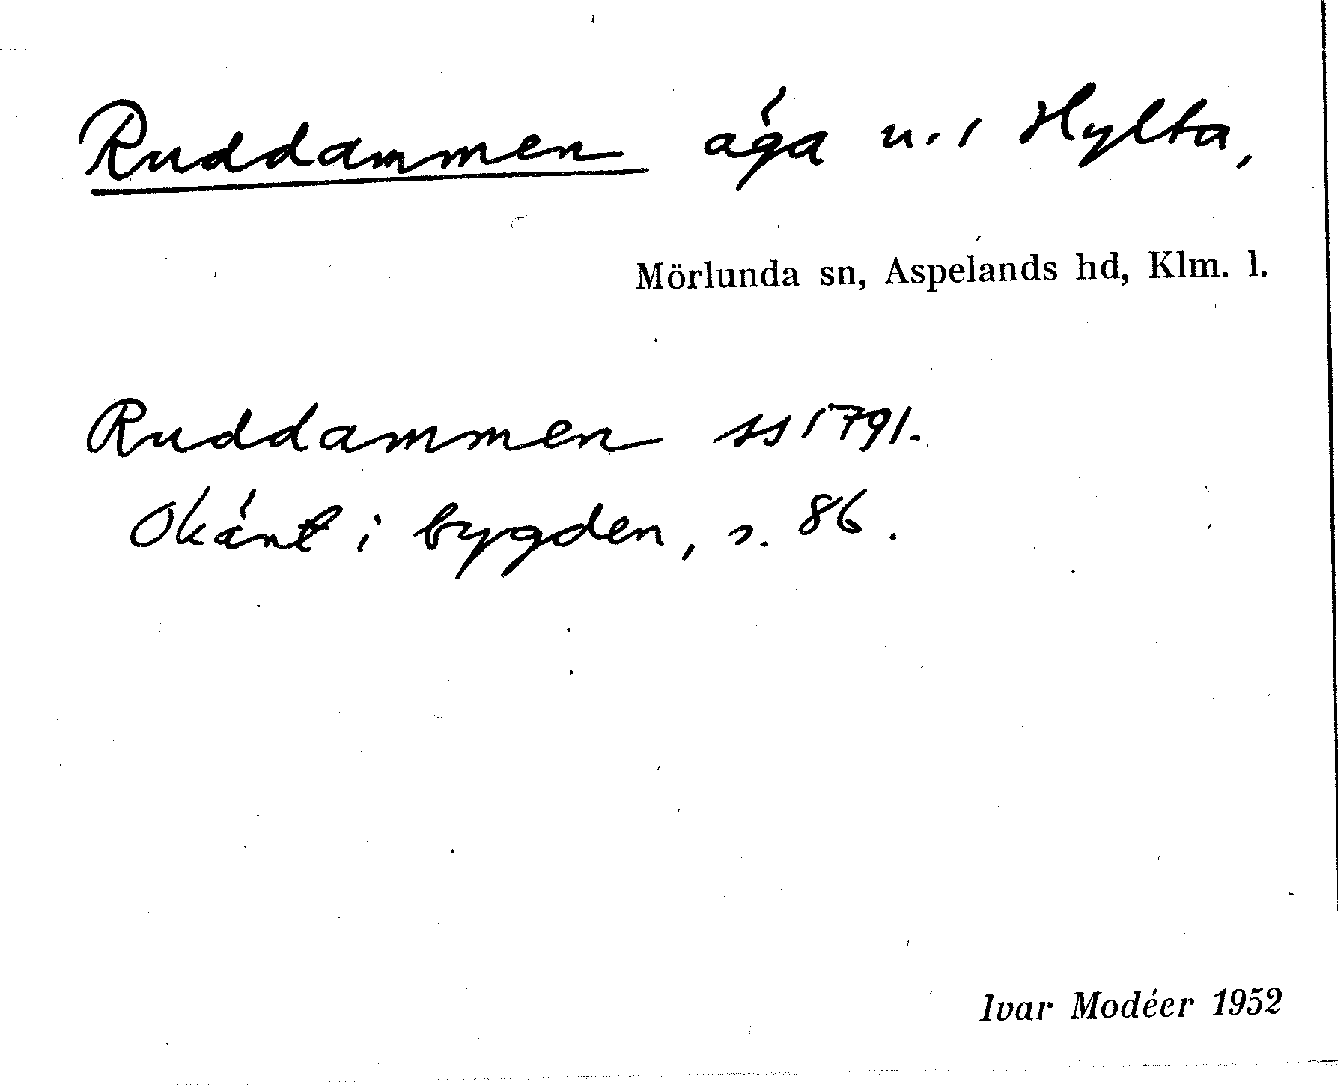 Ruddammen äga u. / Hylta,
Mörlunda sn, Aspelands hd, Klm. l.
Ruddammen ss 1791.
Okänt i bygden, s. 86.
Ivar Modéer 1952